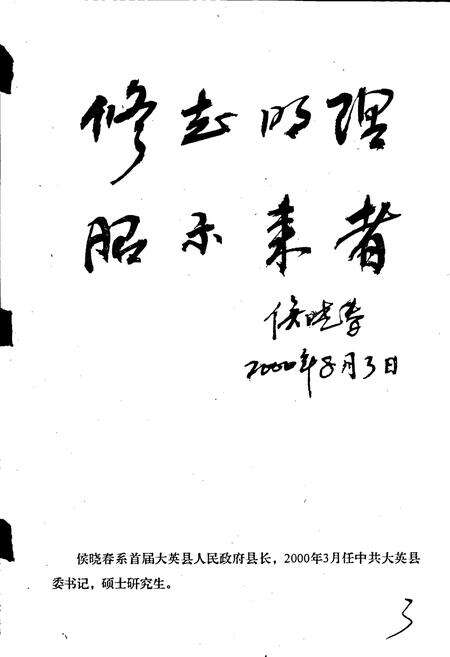 修志明理
昭示来者
侯晓春
2000年8月3日
侯晓春系首届大英县人民政府县长，2000年3月任中共大英县
委书记，硕士研究生。
3